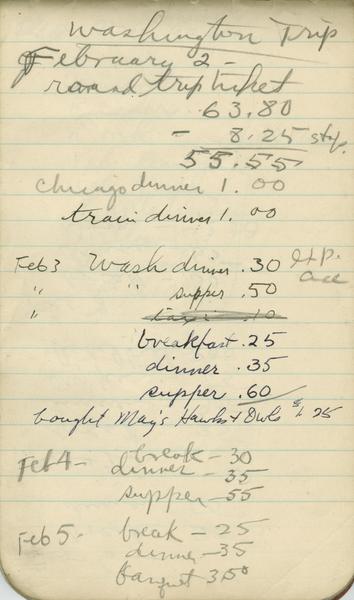 Washington Trip
February 2 -
round trip ticket
63.80
- 8.25 stop.
55.55
Chicago dinner 1.00
train dinner 1.00
Feb 3 Wash dinner .30 Exp.
" " supper .50 acc
" taxi .10
breakfast .25
dinner .35
supper .60
bought May's Hawks & Owls $1.25
Feb 4 - break - 30
dinner - 35
supper - 55
Feb 5. break - 25
dinner - 35
banquet 3.50